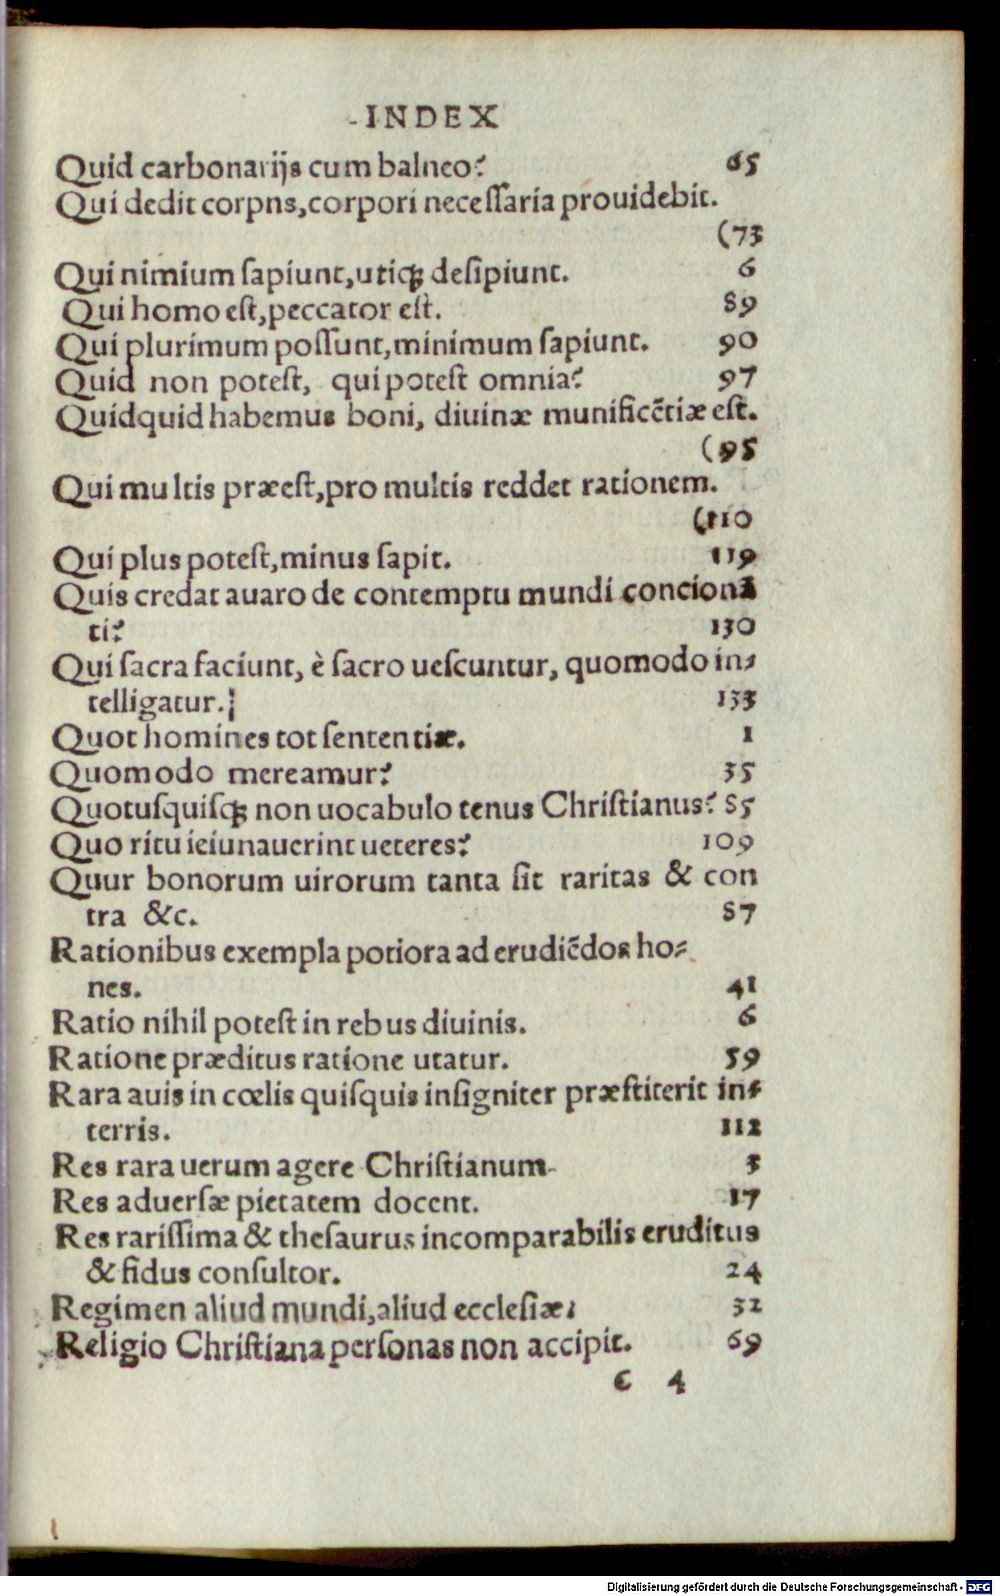 INDEX
Quid carbonarijs cum balneo? 65
Qui dedit corpns,corpori necessaria prouidebit.
(73
Qui nimium sapiunt,utiqꝫ desipiunt. 6
Qui homo est,peccator est. 89
Qui plurimum possunt,minimum sapiunt. 90
Quid non potest, qui potest omnia? 97
Quidquid habemus boni, diuinæ munificẽtiæ est.
(95
Qui multis præest,pro multis reddet rationem.
(110
Qui plus potest,minus sapit. 119
Quis credat auaro de contemptu mundi concionã
ti? 130
Qui sacra faciunt, è sacro uescuntur, quomodo in⸗
telligatur. 133
Quot homines tot sententiæ. 1
Quomodo mereamur? 35
Quotusquisqꝫ non uocabulo tenus Christianus? 85
Quo ritu ieiunauerint ueteres? 109
Quur bonorum uirorum tanta sit raritas & con
tra &c. 87
Rationibus exempla potiora ad erudiẽdos ho⸗
nes. 41
Ratio nihil potest in rebus diuinis. 6
Ratione præditus ratione utatur. 59
Rara auis in cœlis quisquis insigniter præstiterit in⸗
terris. 112
Res rara uerum agere Christianum 3
Res aduersæ pietatem docent. 17
Res rarissima & thesaurus incomparabilis eruditus
& fidus consultor. 24
Regimen aliud mundi,aliud ecclesiæ. 32
Religio Christiana personas non accipit. 69
c 4
Digitalisierung gefördert durch die Deutsche Forschungsgemeinschaft - DFG